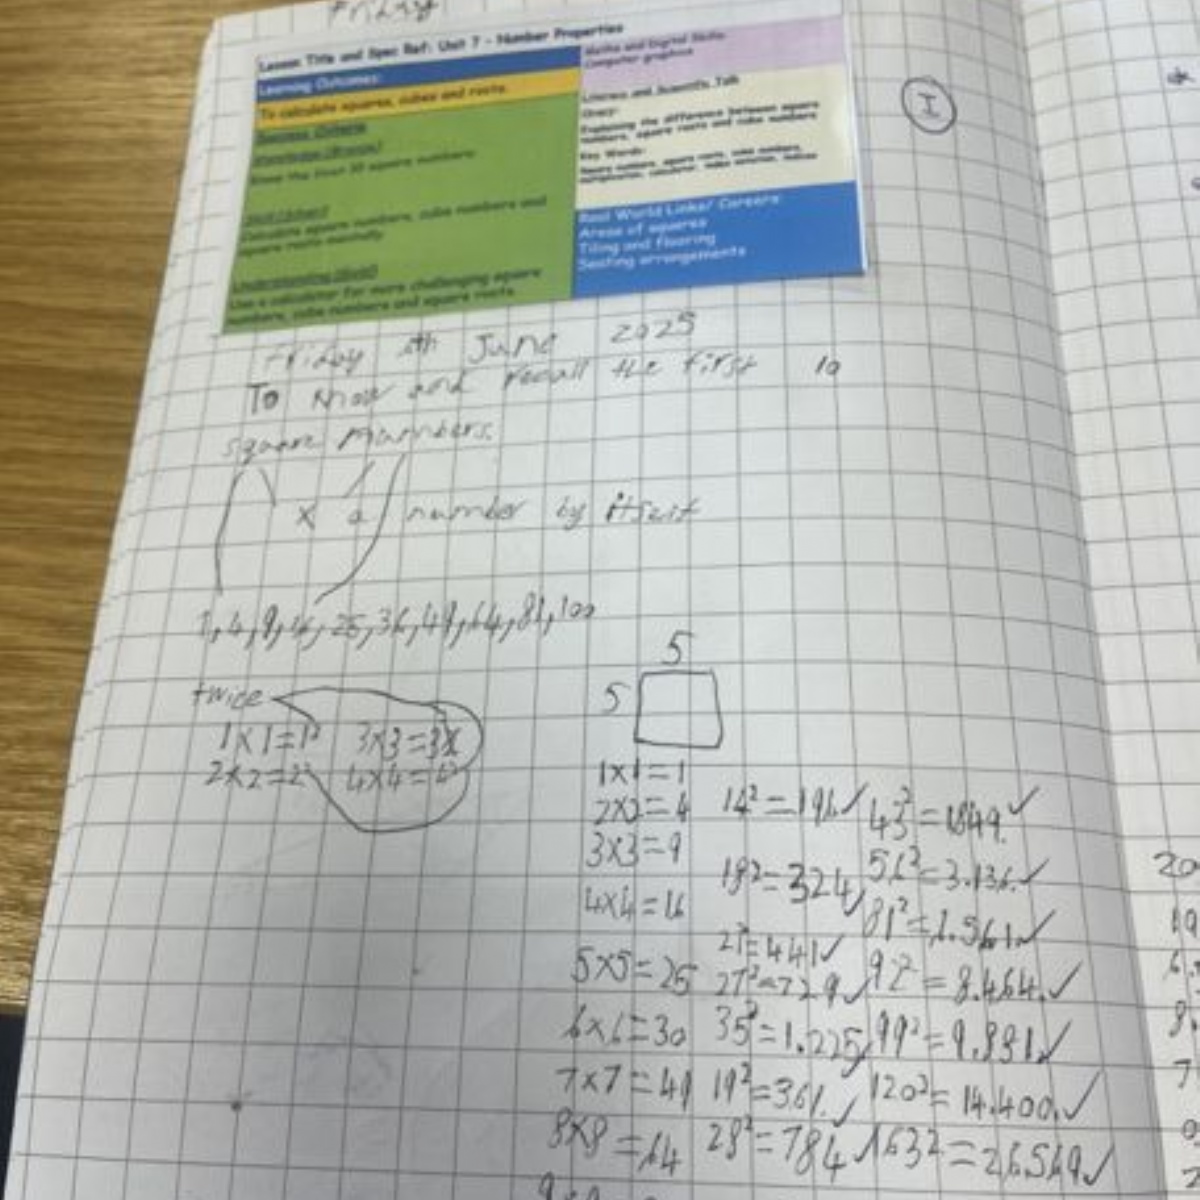 Friday
Lesson Title and Spec Ref: Unit 7 - Number Properties
Learning Outcomes:
To calculate squares, cubes and roots.
Success Criteria
Know the first 10 square numbers.
Calculate square numbers, cube numbers and
square roots mentally.
Understanding (Gold)
Use a calculator for more challenging square
numbers, cube numbers and square roots
Maths and Digital Skills:
Computer graphics
Literacy and Scientific Talk
Oracy:
Explaining the difference between square
numbers, square roots and cube numbers
Key Words:
Square numbers, square roots, cube numbers,
Real World Links/ Careers
Areas of squares
Tiling and flooring
Seating arrangements
I
Friday 6th June 2025
To know and recall the first 10
square numbers.
x a number by itself
1,4,9,16,25,36,49,64,81,100
twice
1x1=1² 3x3=3²
2x2=2² 4x4=4²
5
5
1x1=1
2x2=4
3x3=9
4x4=16
5x5=25
6x6=30
7x7=49
8x8=64
14²=196✓
18²=324✓
21²=441✓
27²=729✓
35²=1.225✓
19²=361.✓
28²=784✓
43²=1849.✓
56²=3.136.✓
81²=6.561.✓
92²=8.464.✓
99²=9.801✓
120²=14.400.✓
163²=26.569✓